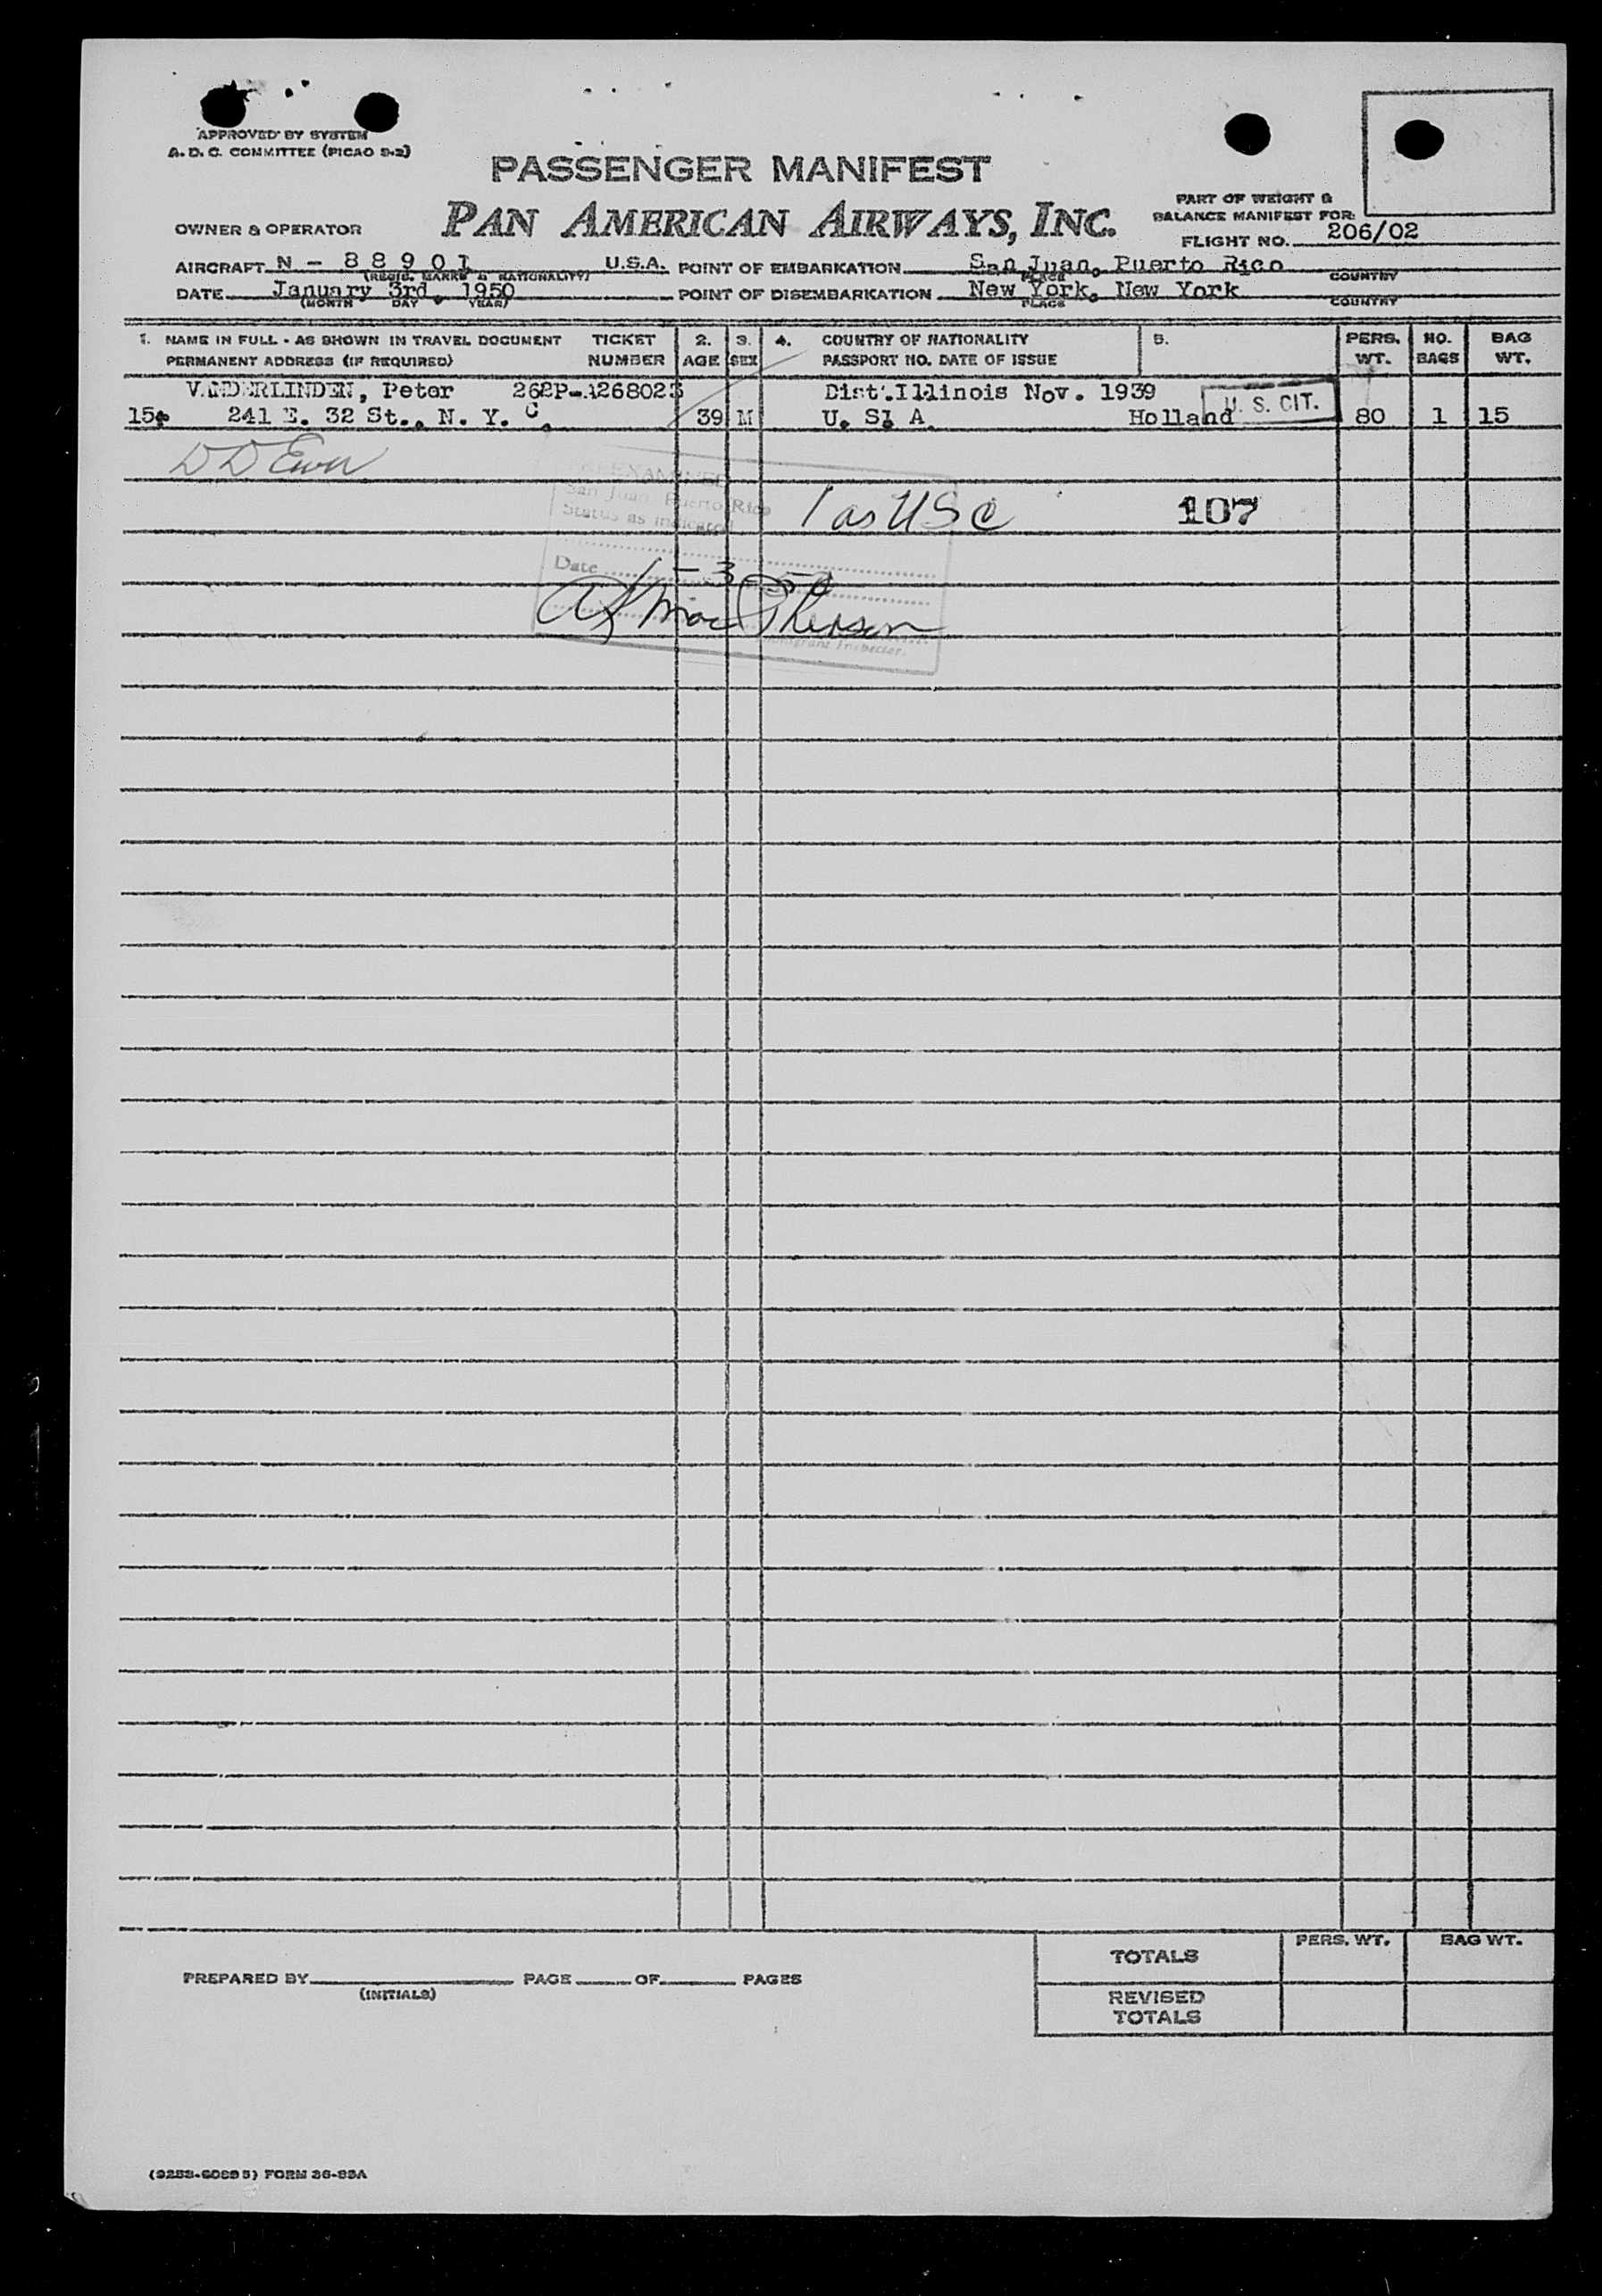 APPROVED BY SYSTEM
A. D. C. COMMITTEE (PICAO 9-2)
PASSENGER MANIFEST
PAN AMERICAN AIRWAYS, INC.
OWNER & OPERATOR
PART OF WEIGHT &
BALANCE MANIFEST FOR:
FLIGHT NO. 206/02
AIRCRAFT N - 88901 U.S.A. POINT OF EMBARKATION San Juan, Puerto Rico
(REGIS. MARKS & NATIONALITY) PLACE COUNTRY
DATE January 3rd, 1950 POINT OF DISEMBARKATION New York, New York
(MONTH DAY YEAR) PLACE COUNTRY
1. NAME IN FULL - AS SHOWN IN TRAVEL DOCUMENT TICKET 2. 3. 4. COUNTRY OF NATIONALITY 5. PERS. NO. BAG
PERMANENT ADDRESS (IF REQUIRED) NUMBER AGE SEX PASSPORT NO. DATE OF ISSUE WT. BAGS WT.
VANDERLINDEN, Peter 262P-A268023 Dist.Illinois Nov. 1939
15. 241 E. 32 St., N. Y. C. 39 M U. S. A. Holland U. S. CIT. 80 1 15
EXAMINED
San Juan, Puerto Rico
Status as indicated
1 as USC 107
Date 1-3-50
Immigrant Inspector.
TOTALS PERS. WT. BAG WT.
PREPARED BY PAGE OF PAGES
(INITIALS)
REVISED
TOTALS